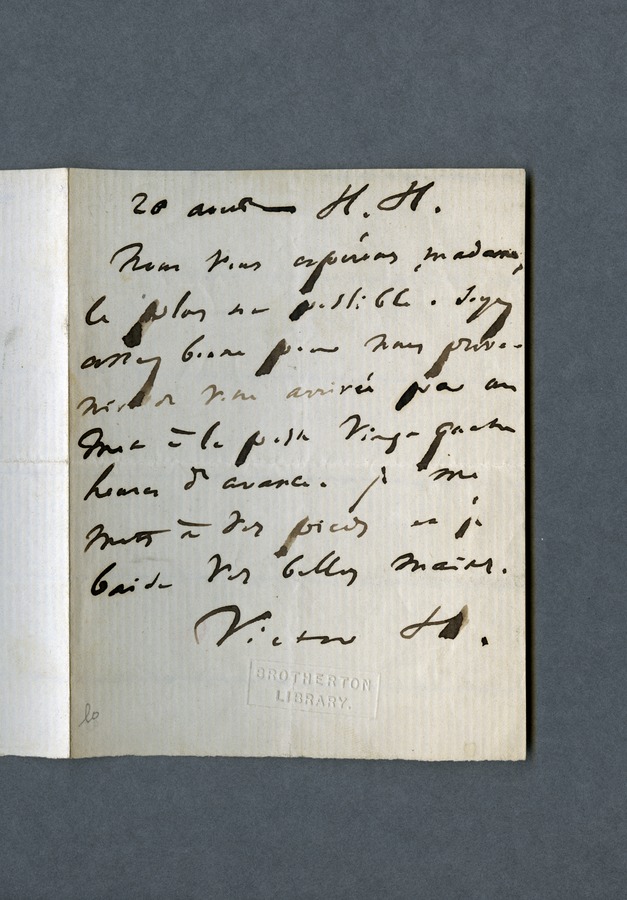 20 août H. H.
Nous vous espérons, madame,
le plus  possible. Soyez
assez bonne pour nous préve-
nir de votre arrivée par un
mot à la poste vingt quatre
heures d'avance. je me
mets à vos pieds et je
baise vos belles mains.
Victor H.
BROTHERTON
LIBRARY.